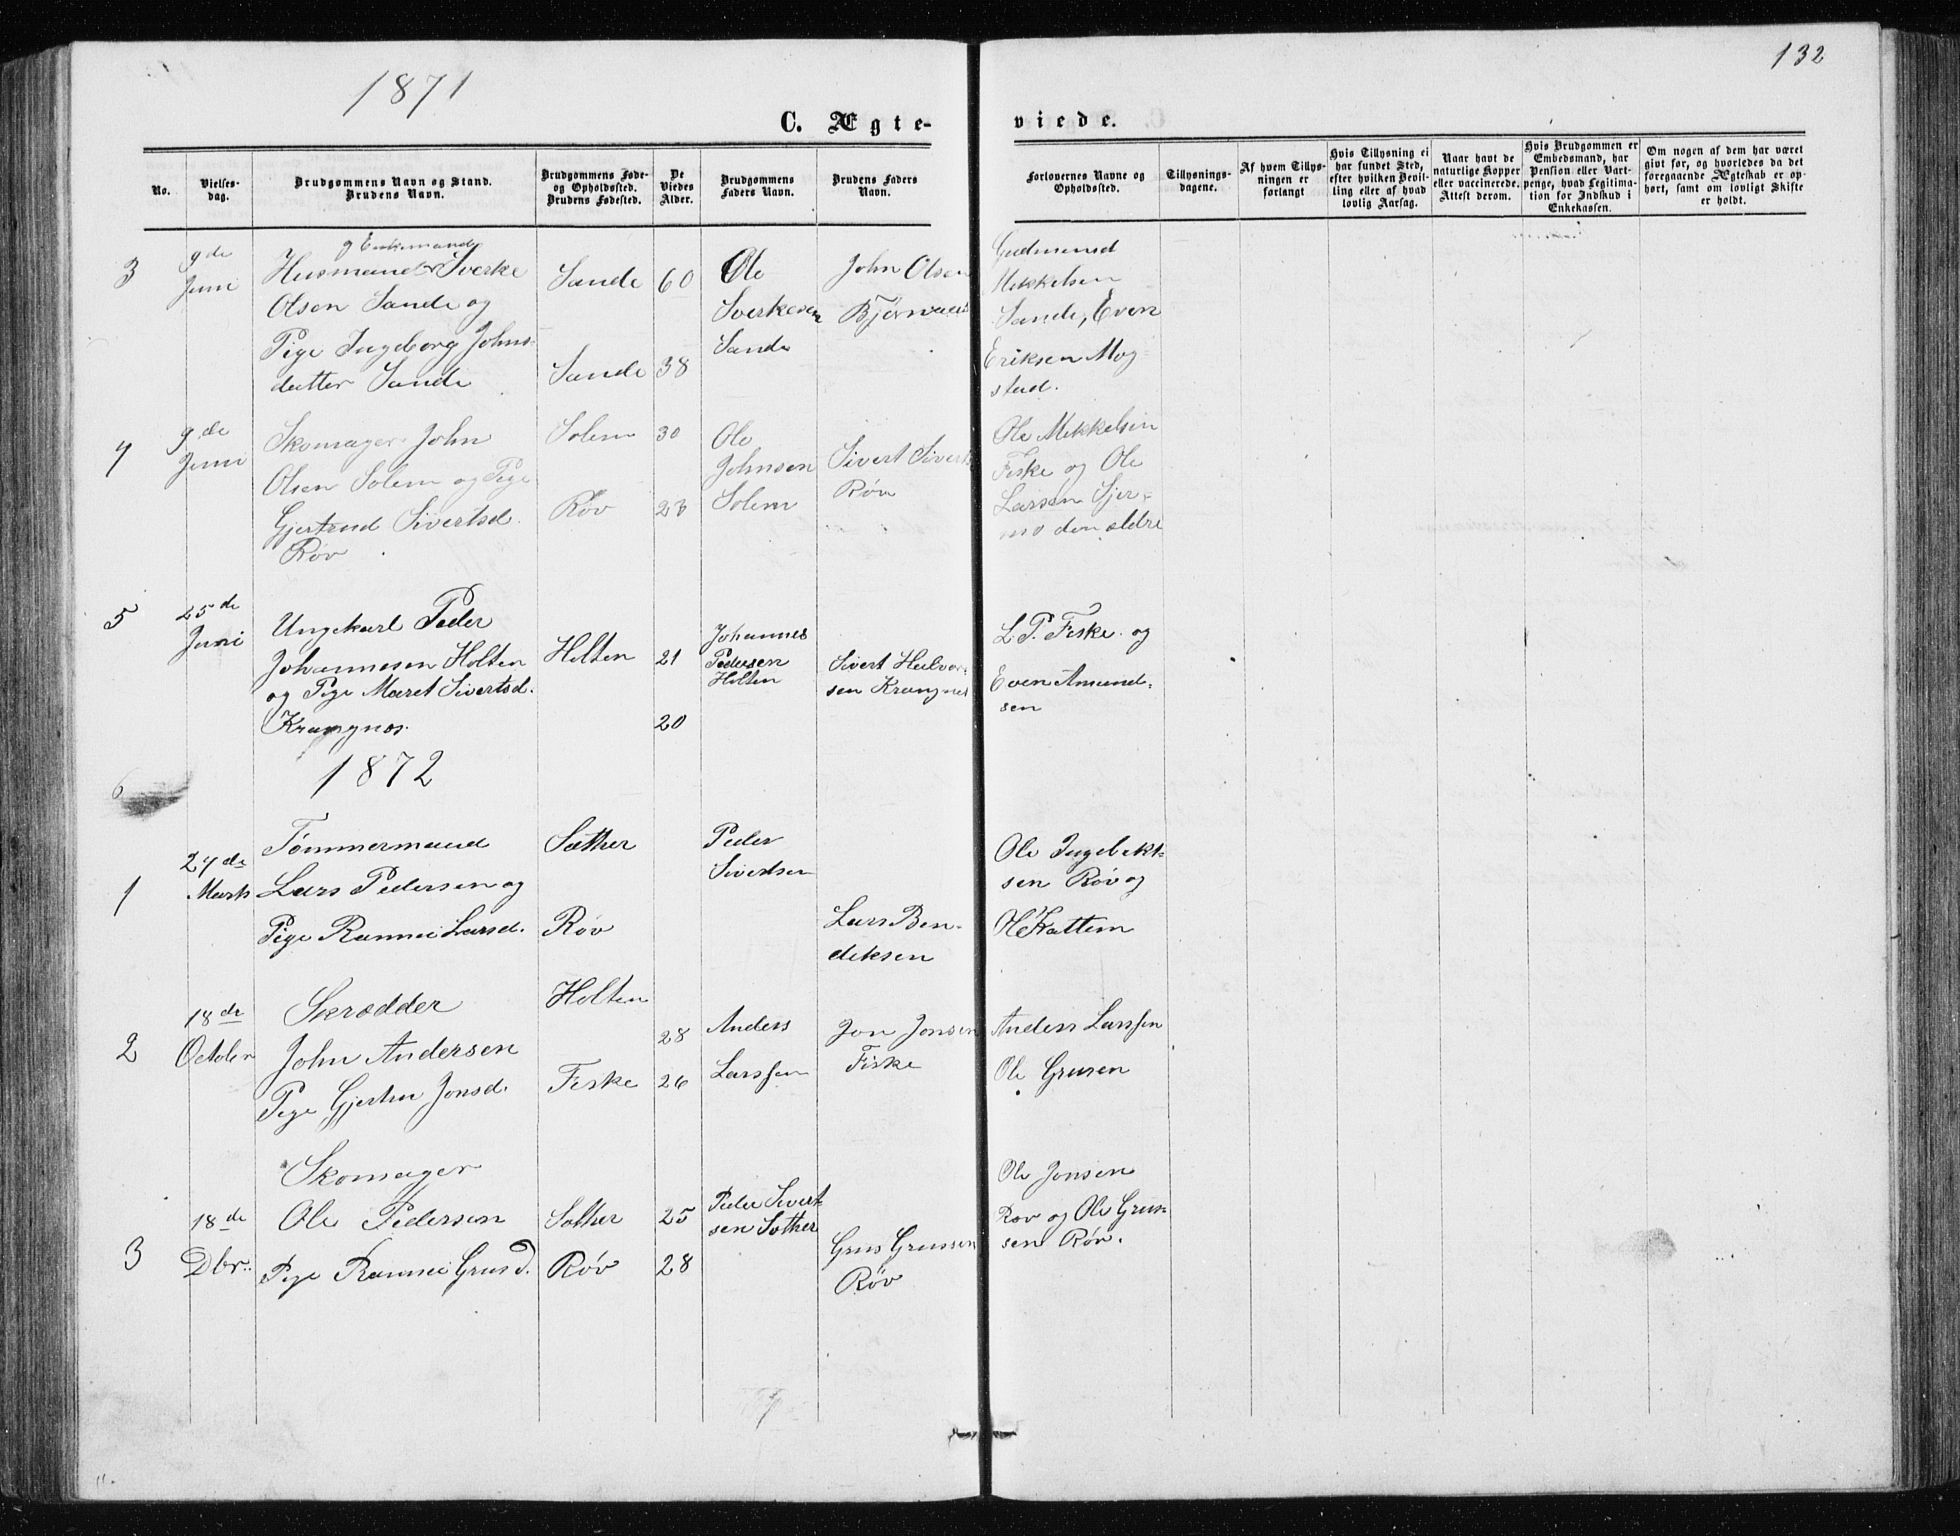 132
1871
C. Ægte-
viede.
No.
Vielses-
dag.
Brudgommens Navn og Stand.
Brudens Navn.
Brudgommens Føde-
og Opholdsted.
Brudens Fødested.
De
Viedes
Alder.
Brudgommens
Faders Navn.
Brudens Faders
Navn.
Forlovernes Navne og
Opholdsted.
Tillysnings-
dagene.
Af hvem Tillys-
ningen er
forlangt
Hvis Tillysning ei
har fundet Sted,
efter hvilken Bevil-
ling eller af hvad
lovlig Aarsag.
Naar havt de
naturlige Kopper
eller vaccinerede.
Attest derom.
Hvis Brudgommen er
Embedsmand, har
Pension eller Vart-
penge, hvad Legitima-
tion for Indskud i
Enkekassen.
Om nogen af dem har været
givt før, og hvorledes da det
foregaaende Ægteskab er op-
hørt, samt om lovligt Skifte
er holdt.
3
9de
Juni
g Enkemand
Husmand Sverke
Olsen Sande og
Pige Ingeborg Johns-
datter Sande
Sande
Sande
60
38
Ole
Sverkesen
Sande
John Olsen
Gudmund
Mikkelsen
Sande, Even
Eriksen Mog-
stad.
4
9de
Juni
Skomager John
Olsen Solem og Pige
Gjertrud Sivertsd.
Røv
Solem
Røv
30
28
Ole
Johnsen
Solem
Sivert Siverts
Røv
Ole Mikkelsen
Fiske og Ole
Larsen Sjer-
mo den ældre
5
25de
Juni
Ungekarl Peder
Johannesen Holten
og Pige Maret Sivertsd.
Krangnes.
Holten
21
20
Johannes
Pedersen
Holten
Sivert Halvor-
sen Krangnes
L. P. Fiske og
Even Amund-
sen
6
1872
1
27de
Marts
Tømmermand
Lars Pedersen og
Pige Rannei Larsd.
Sæther
Røv
Peder
Sivertsen
Lars Ben-
diksen
Ole Ingebrikt-
sen Røv og
Ole Kattem
2
18de
October
Skrædder
John Andersen
Pige Gjertru Jonsd.
Holten
Fiske
28
26
Anders
Larssen
Jon Jonsen
Fiske
Anders Larssen
Ole Grusen
3
18de
Dbr.
Skomager
Ole Pedersen
Pige Rannei Grusd.
Sæther
Røv
25
28
Peder Sivert-
sen Sæther
Grus Grussen
Røv
Ole Jonsen
Røv og Ole Grus-
sen Røv.